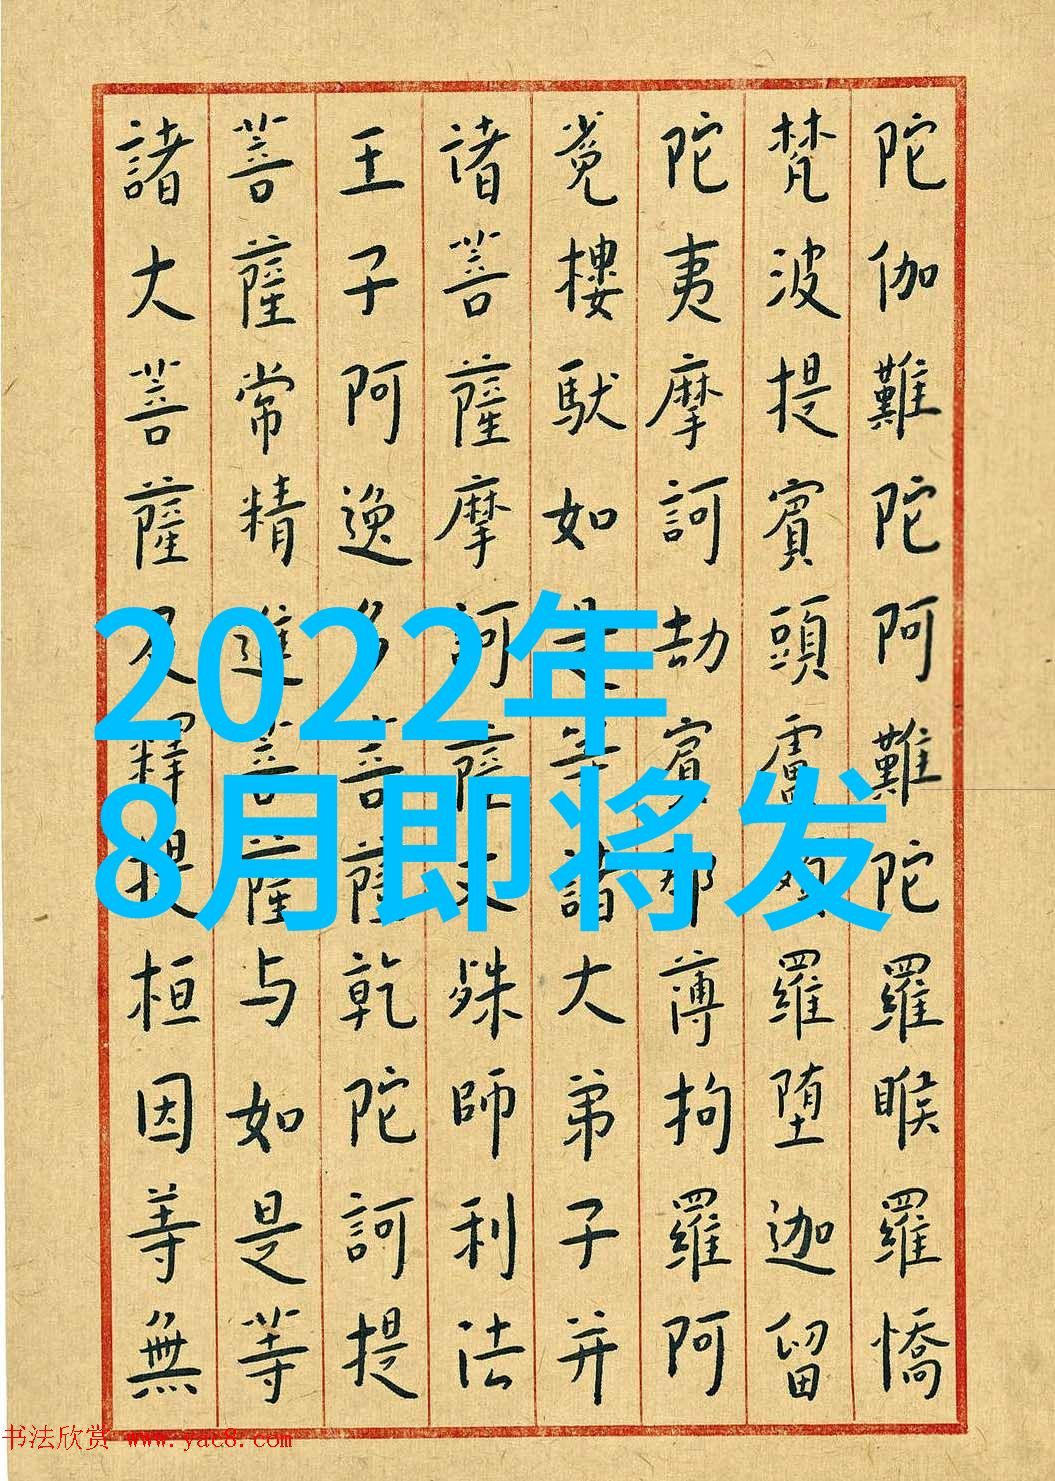 2022年
8月即将发
陀伽難陀阿難陀羅睺羅憍
梵波提賓頭盧頗羅堕迦留
陀夷摩訶劫賓那薄拘羅阿
樓馱如是等諸大弟子并
诸菩薩摩訶薩文殊師利法
王子阿逸多菩薩乾陀訶提
菩薩常精進菩薩与如是等
諸大菩薩及釋提桓因等無
书法欣赏 www.yac8.com